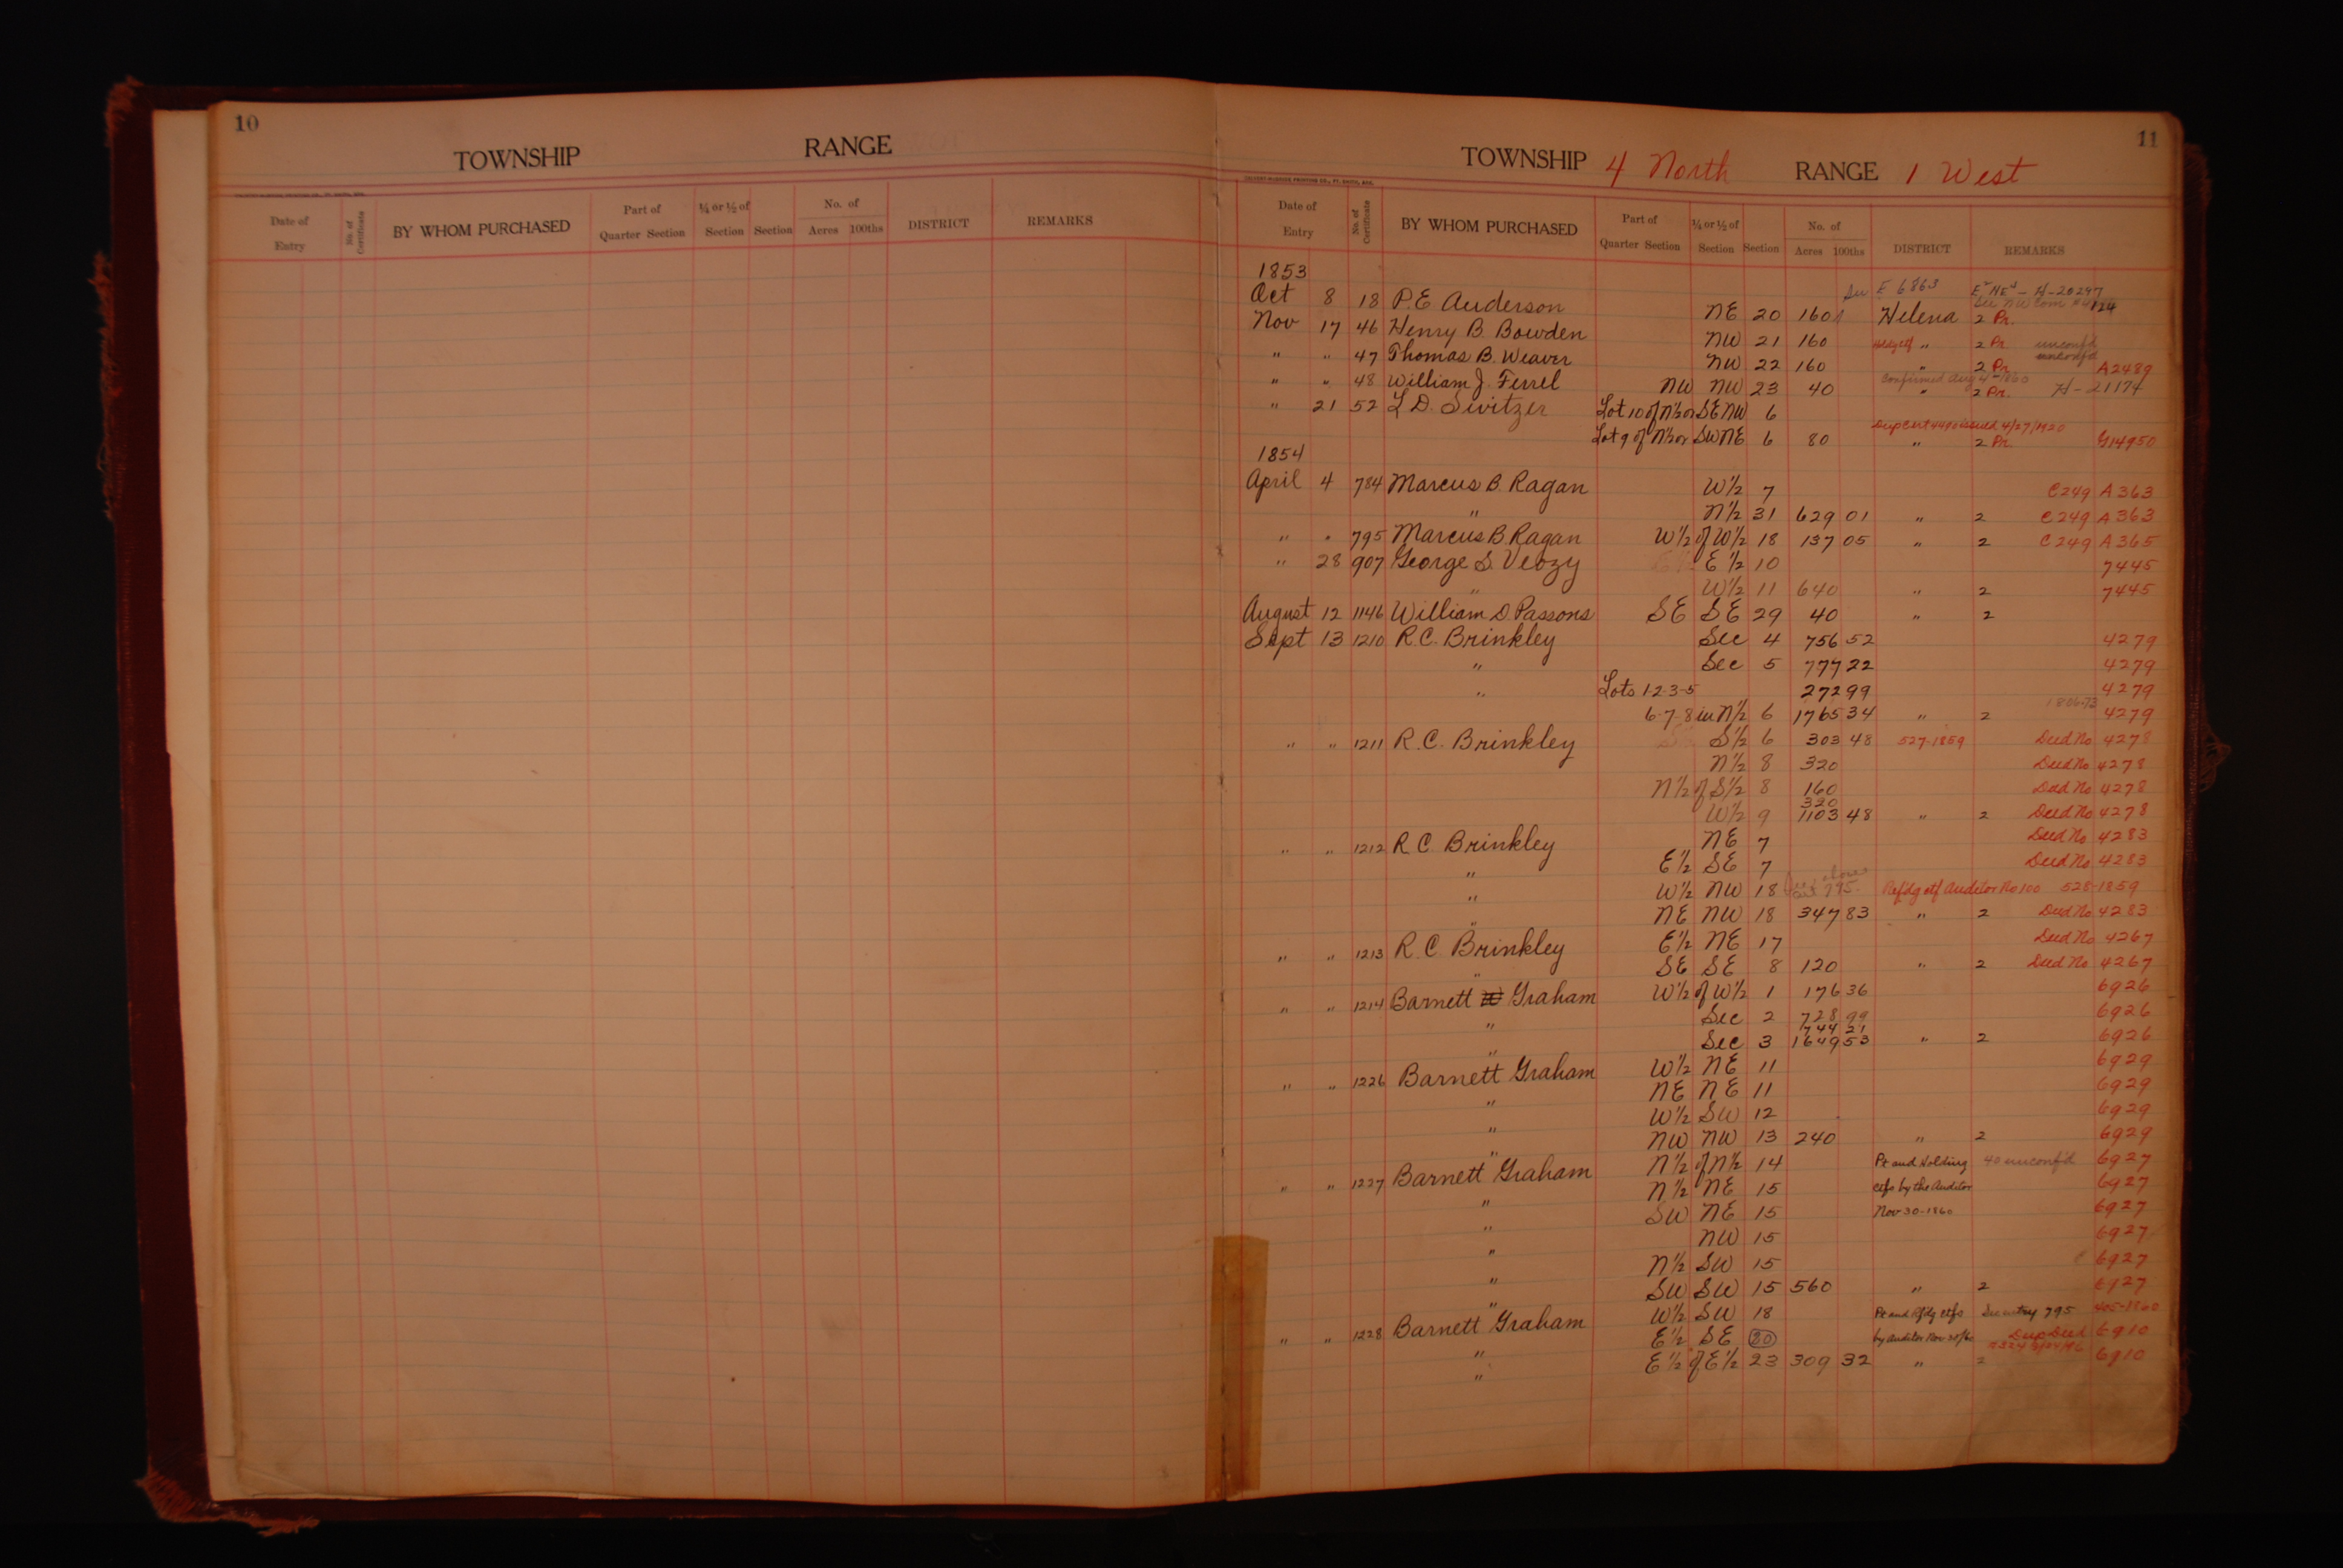 10
TOWNSHIP RANGE
Date of Entry No. of Certificate BY WHOM PURCHASED Part of Quarter Section ¼ or ½ of Section Section No. of Acres 100ths DISTRICT REMARKS
11
TOWNSHIP 4 North RANGE 1 West
Date of Entry No. of Certificate BY WHOM PURCHASED Part of Quarter Section ¼ or ½ of Section Section No. of Acres 100ths DISTRICT REMARKS
1853
E 6863 H-20297
Oct 8 18 P.E Anderson NE 20 160 Helena 2 Pr.
Nov 17 46 Henry B. Bowden NW 21 160 " 2 Pr unconfd
" " 47 Thomas B. Weaver NW 22 160 " 2 Pr unconfd A2489
Confirmed Aug 4-1860
" " 48 William J. Ferrel NW NW 23 40 " 2 Pr. H-21174
" 21 52 L D. Switzer Lot 10 of N½ or SE NW 6
Dup Cert 4490 issued 4/27/1920
Lot 9 of N½ or SW NE 6 80 " 2 Pr. G14950
1854
April 4 784 Marcus B. Ragan W½ 7 C249 A363
" N½ 31 629 01 " 2 C249 A363
" " 795 Marcus B Ragan W½ of W½ 18 137 05 " 2 C249 A365
" 28 907 George S. Veozy E ½ 10 7445
" W½ 11 640 " 2 7445
August 12 1146 William D Passons SE SE 29 40 " 2
Sept 13 1210 R.C. Brinkley Sec 4 756 52 4279
" Sec 5 777 22 4279
" Lots 1-2-3-5 272 99 4279
1806.73
6-7-8 in N½ 6 1765 34 " 2 4279
" " 1211 R.C. Brinkley S½ 6 303 48 527-1859 Deed No 4278
N½ 8 320 Deed No 4278
N½ of S½ 8 160 Deed No 4278
320
W½ 9 1103 48 " 2 Deed No 4278
" " 1212 R.C. Brinkley NE 7 Deed No 4283
" E½ SE 7 Deed No 4283
" W½ NW 18 795 Refdg ctf Auditor No 100 528-1859
" NE NW 18 347 83 " 2 Deed No 4283
" " 1213 R.C. Brinkley E½ NE 17 Deed No 4267
" SE SE 8 120 " 2 Deed No 4267
" " 1214 Barnett Graham W½ of W½ 1 176 36 6926
" Sec 2 728 99 6926
744 21
" Sec 3 1649 53 " 2 6926
" " 1226 Barnett Graham W½ NE 11 6929
" NE NE 11 6929
" W½ SW 12 6929
" NW NW 13 240 " 2 6929
" " 1227 Barnett Graham N½ of N½ 14 Pt and Holding 40 unconfd 6927
" N½ NE 15 ctfs by the Auditor 6927
" SW NE 15 Nov 30-1860 6927
" NW 15 6927
" N½ SW 15 6927
" SW SW 15 560 " 2 6927
" " 1228 Barnett Graham W½ SW 18 Pt and Rfdg ctfs See entry 795 405-1860
" E½ SE 20 by Auditor Nov 30/60 Dup Deed 6910
" E½ of E½ 23 309 32 " 2 6910